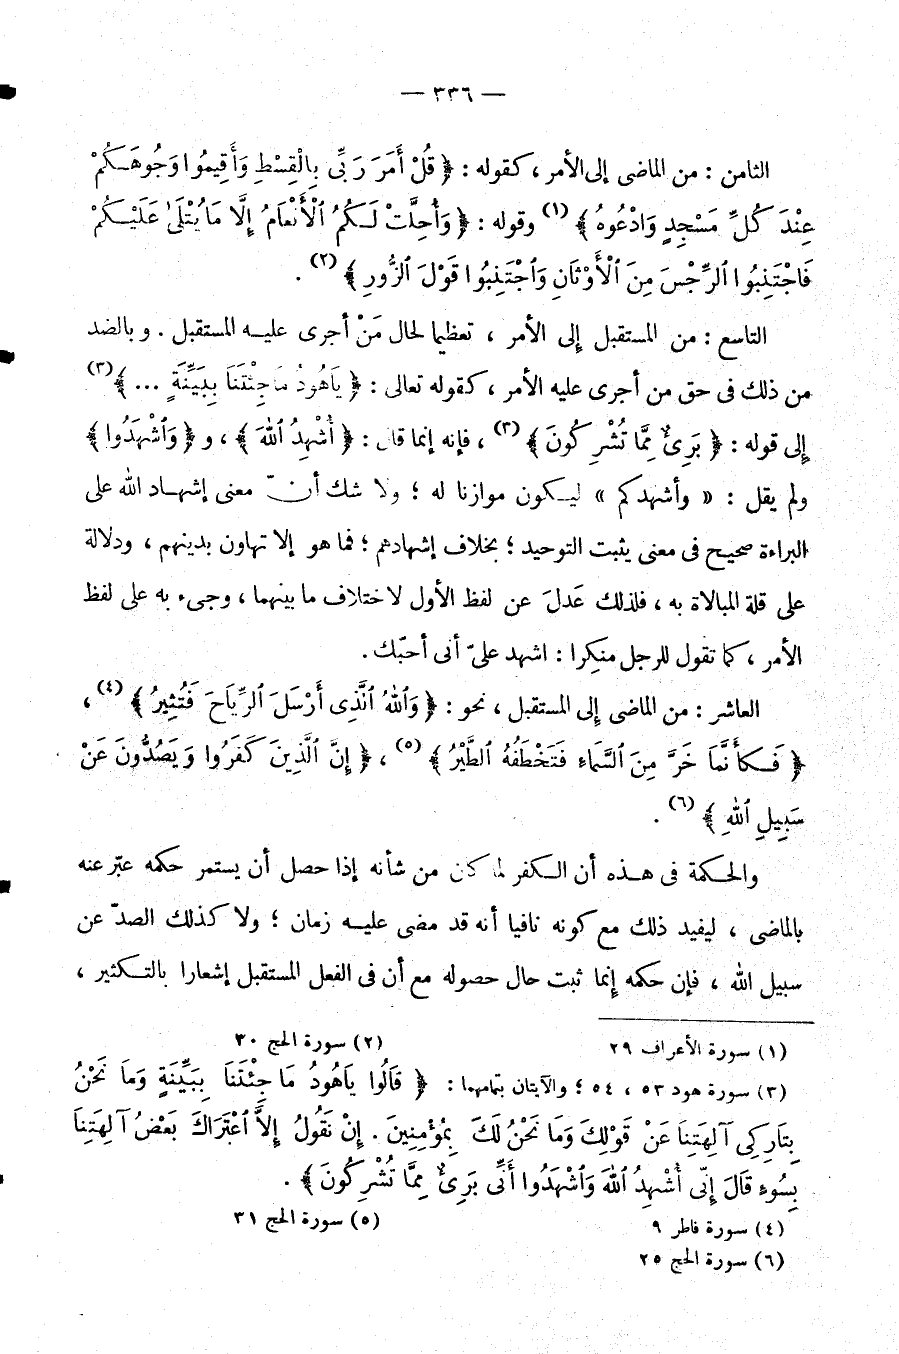 — ٣٣٦ —
الثامن : من الماضى إلى الأمر ، كقوله : ﴿ قُلْ أَمَرَ رَبِّى بِالْقِسْطِ وَأَقِيمُوا وُجُوهَكُمْ
عِنْدَ كُلِّ مَسْجِدٍ وَادْعُوهُ ﴾ (١) وقوله : ﴿ وَأُحِلَّتْ لَكُمُ ٱلْأَنْعَامُ إِلَّا مَا يُتْلَىٰ عَلَيْكُمْ
فَاجْتَنِبُوا ٱلرِّجْسَ مِنَ ٱلْأَوْثَانِ وَٱجْتَنِبُوا قَوْلَ ٱلزُّورِ ﴾ (٢) .
التاسع : من المستقبل إلى الأمر ، تعظيما لحال مَنْ أجرى عليه المستقبل . وبالضد
من ذلك فى حق من أجرى عليه الأمر ، كقوله تعالى : ﴿ يَاهُودُ مَا جِئْتَنَا بِبَيِّنَةٍ ... ﴾ (٣)
إلى قوله : ﴿ بَرِىءٌ مِمَّا تُشْرِكُونَ ﴾ (٣) ، فإنه إنما قال : ﴿ أُشْهِدُ ٱللّٰهَ ﴾ ، و ﴿ وَٱشْهَدُوا ﴾
ولم يقل : « وأشهدكم » ليكون موازنا له ؛ ولا شك أنّ معنى إشهاد الله على
البراءة صحيح فى معنى يثبت التوحيد ؛ بخلاف إشهادهم ؛ فما هو إلا تهاون بدينهم ، ودلالة
على قلة المبالاة به ، فلذلك عَدلَ عن لفظ الأول لاختلاف ما بينهما ، وجىء به على لفظ
الأمر ، كما تقول للرجل منكرا : اشهد علىّ أنى أحبّك .
العاشر : من الماضى إلى المستقبل ، نحو : ﴿ وَٱللّٰهُ ٱلَّذِى أَرْسَلَ ٱلرِّيَاحَ فَتُثِيرُ ﴾ (٤) ،
﴿ فَكَأَنَّمَا خَرَّ مِنَ ٱلسَّمَاءِ فَتَخْطَفُهُ ٱلطَّيْرُ ﴾ (٥) ، ﴿ إِنَّ ٱلَّذِينَ كَفَرُوا وَيَصُدُّونَ عَنْ
سَبِيلِ ٱللّٰهِ ﴾ (٦) .
والحكمة فى هذه أن الكفر لما كان من شأنه إذا حصل أن يستمر حكمه عبّر عنه
بالماضى ، ليفيد ذلك مع كونه نافيا أنه قد مضى عليه زمان ؛ ولا كذلك الصدّ عن
سبيل الله ، فإن حكمه إنما ثبت حال حصوله مع أن فى الفعل المستقبل إشعارا بالتكثير ،
(١) سورة الأعراف ٢٩ (٢) سورة الحج ٣٠
(٣) سورة هود ٥٣ ، ٥٤ ؛ والآيتان بتمامهما : ﴿ قَالُوا يَاهُودُ مَا جِئْتَنَا بِبَيِّنَةٍ وَمَا نَحْنُ
بِتَارِكِى آلِهَتِنَا عَنْ قَوْلِكَ وَمَا نَحْنُ لَكَ بِمُؤْمِنِينَ . إِنْ نَقُولُ إِلاَّ ٱعْتَرَاكَ بَعْضُ آلِهَتِنَا
بِسُوءٍ قَالَ إِنّى أُشْهِدُ ٱللّٰهَ وَٱشْهَدُوا أَنِّى بَرِىءٌ مِمَّا تُشْرِكُونَ ﴾ .
(٤) سورة فاطر ٩ (٥) سورة الحج ٣١
(٦) سورة الحج ٢٥